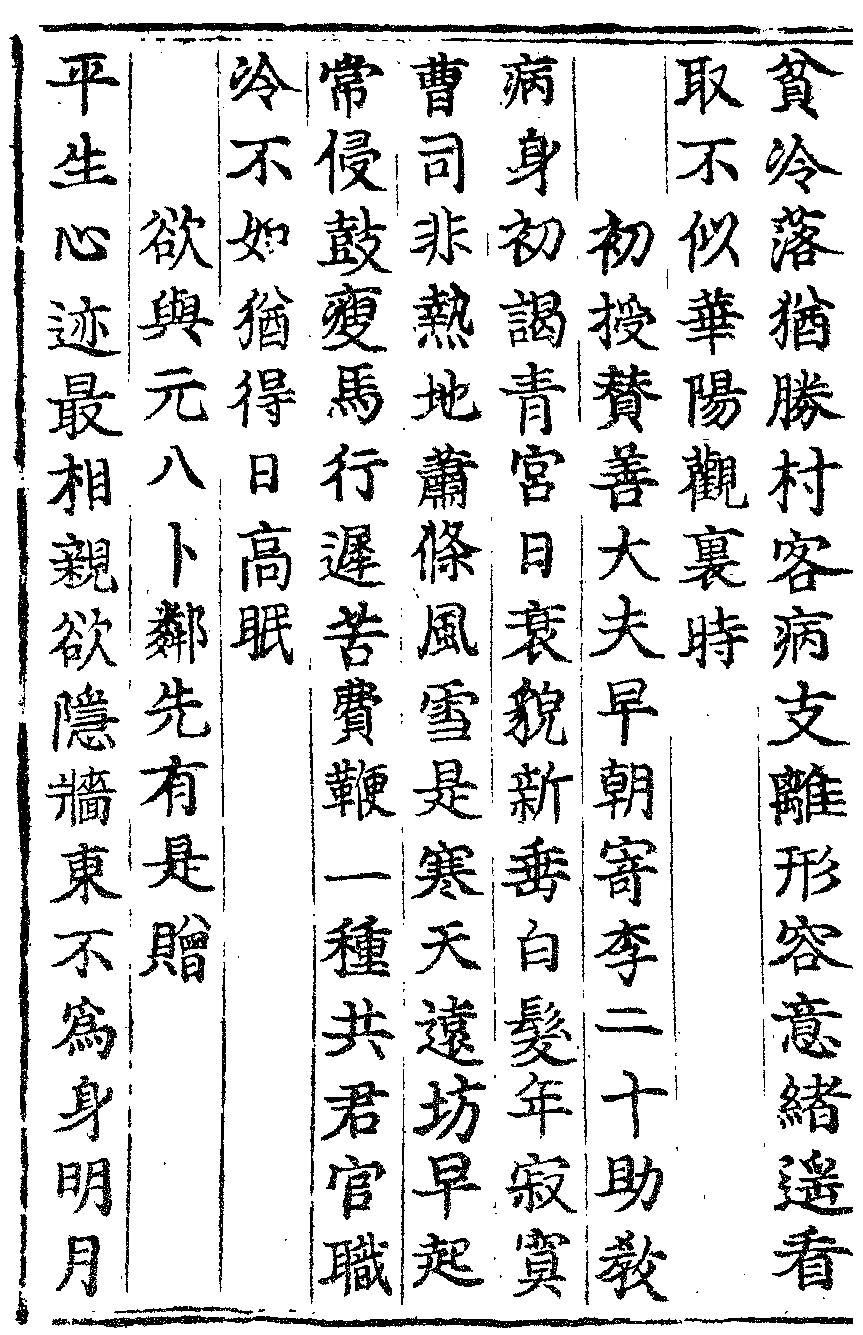 貧冷落猶勝村客病支離形容意緒遥看
取不似華陽觀裏時
初授贊善大夫早朝寄李二十助教
病身初謁青宮日衰貌新垂白髮年寂寞
曹司非熱地蕭條風雪是寒天遠坊早起
常侵鼓瘦馬行遲苦費鞭一種共君官職
冷不如猶得日高眠
欲與元八卜鄰先有是贈
平生心迹最相親欲隱牆東不爲身明月